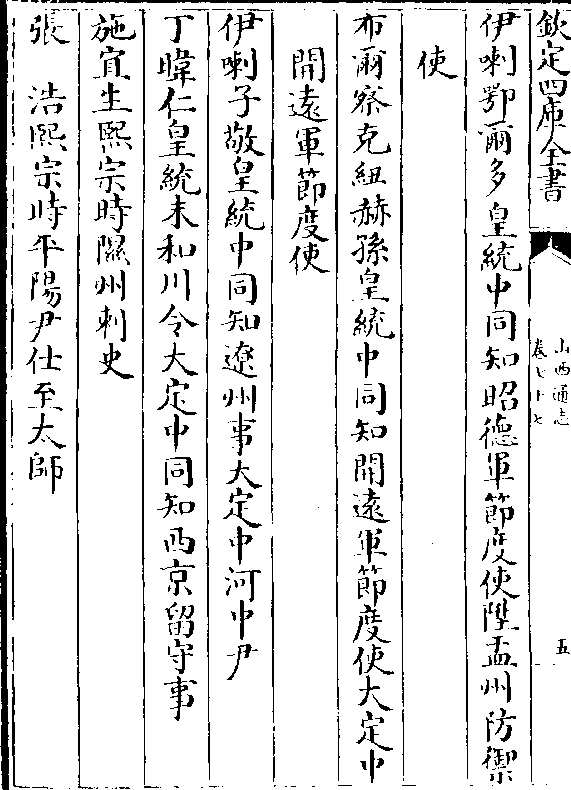 欽定四庫全書
山西通志
卷七十七
五
伊喇鄂爾多皇統中同知昭德軍節度使陞盂州防禦
使
布爾察克紐赫孫皇統中同知開遠軍節度使大定中
開遠軍節度使
伊喇子敬皇統中同知遼州事大定中河中尹
丁暐仁皇統末和川令大定中同知西京留守事
施宜生熙宗時隰州刺史
張　浩熙宗時平陽尹仕至太師